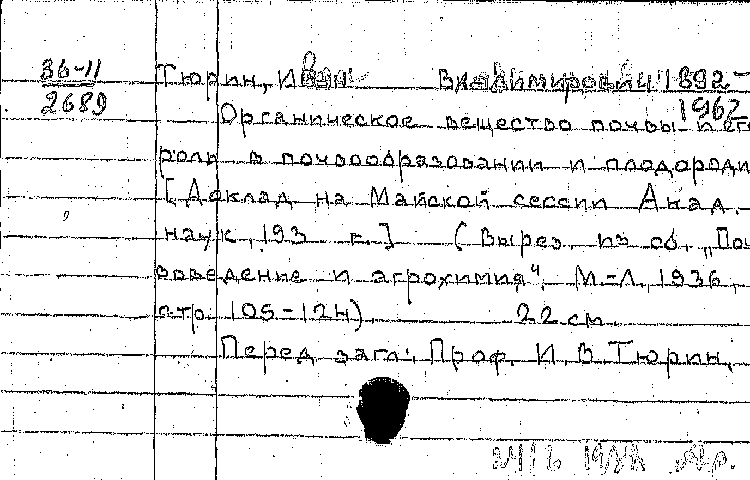 36-11
2689
Тюрин, Иван Владимирович 1892-
1962
Органическое вещество почвы и его
роль в почвообразовании и плодороди
[Доклад на Майской сессии Акад.
наук, 193 г.] (Вырез. из сб. „Поч
воведение и агрохимия", М.-Л., 1936,
стр. 105-124) 22 см
Перед загл.: Проф. И. В. Тюрин.